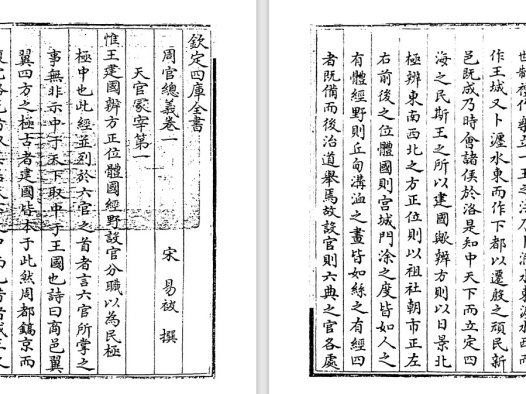 欽定四庫全書
周官總義卷一
宋 易祓 撰
天官冢宰第一
惟王建國辨方正位體國經野設官分職以為民極
極中也此經並列於六官之首者言六官所掌之
事無非示中于天下取中于王國也詩曰商邑翼
翼四方之極古者建國皆本于此然周都鎬京而
作王城又卜瀍水東而作下都以遷殷之頑民新
邑既成乃時會諸侯於洛是知中天下而立定四
海之民斯王之所以建國歟辨方則以日景北
極辨東南西北之方正位則以祖社朝市正左
右前後之位體國則宫城門涂之度皆如人之
有體經野則丘甸溝洫之畫皆如絲之有經四
者既備而後治道舉焉故設官則六典之官各處